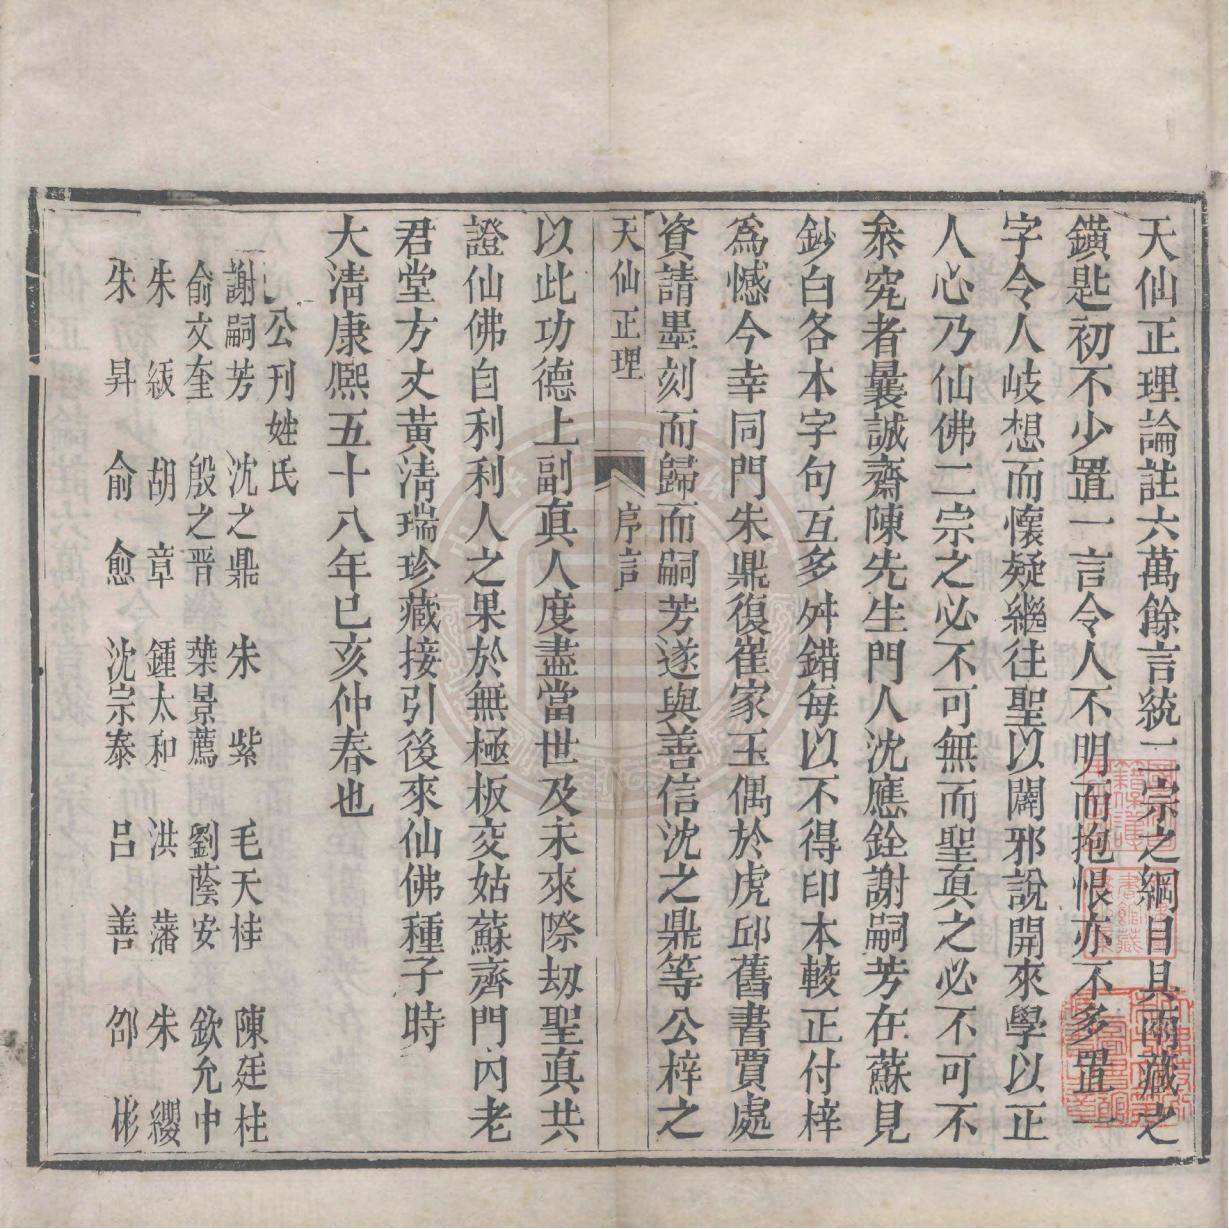 天仙正理論註六萬餘言統一宗之綱目具兩藏之
鐀匙初不少置一言令人不明而抱恨亦不多置一
字令人岐想而懷疑繼往聖以闢邪說開來學以正
人心乃仙佛二宗之必不可無而聖真之必不可不
叅究者曩誠齋陳先生門人沈應銓謝嗣芳在蘇見
鈔白各本字句互多舛錯每以不得印本較正付梓
為憾今幸同門朱鼎復崔家玉偶於虎邱舊書賈處
資請墨刻而歸而嗣芳遂與善信沈之鼎等公梓之
天仙正理 序言
以此功德上副真人度盡當世及未來際劫聖真共
證仙佛自利利人之果於無極板交姑蘇齊門內老
君堂方丈黃清瑞珍藏接引後來仙佛種子時
大清康熙五十八年己亥仲春也
公刊姓氏
謝嗣芳 沈之鼎 朱 紫 毛天桂 陳廷柱
俞文奎 殷之晋 葉景薦 劉蔭安 欽允中
朱 綎 胡 章 鍾太和 洪 藩 朱 纓
朱 昇 俞 愈 沈宗泰 呂 善 邵 彬